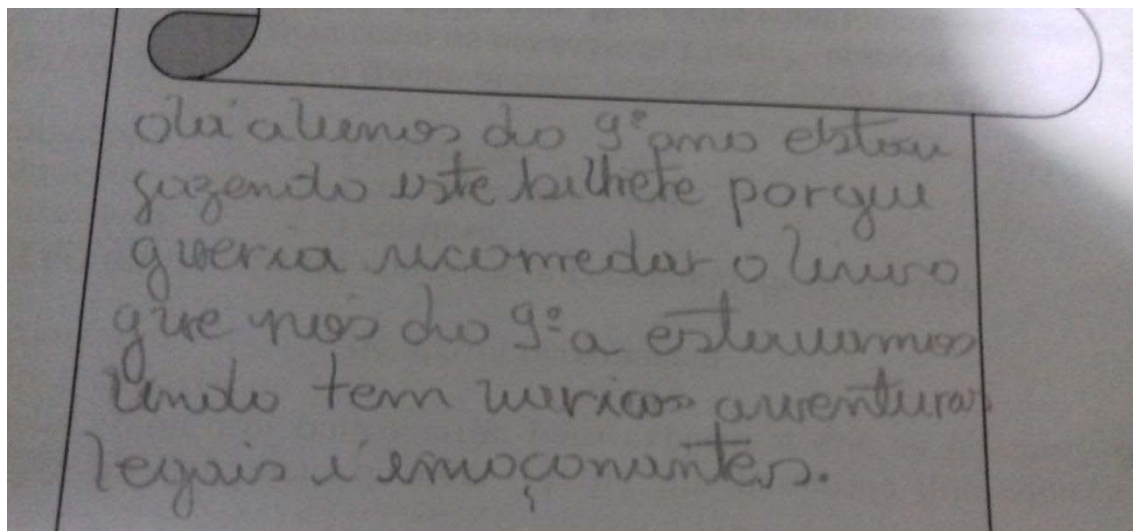 olá alunos do 9º ano estou
fazendo este bilhete porque
queria recomedar o livro
que nós do 9º a estavamos
lendo tem varias aventuras
legais i emoçonantes.